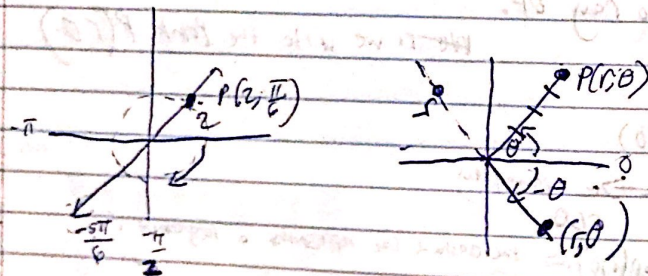 P(2, π/6)
2
-π
-5π/6
-π/2
P(r, θ)
r
θ
0
-θ
(r, θ)